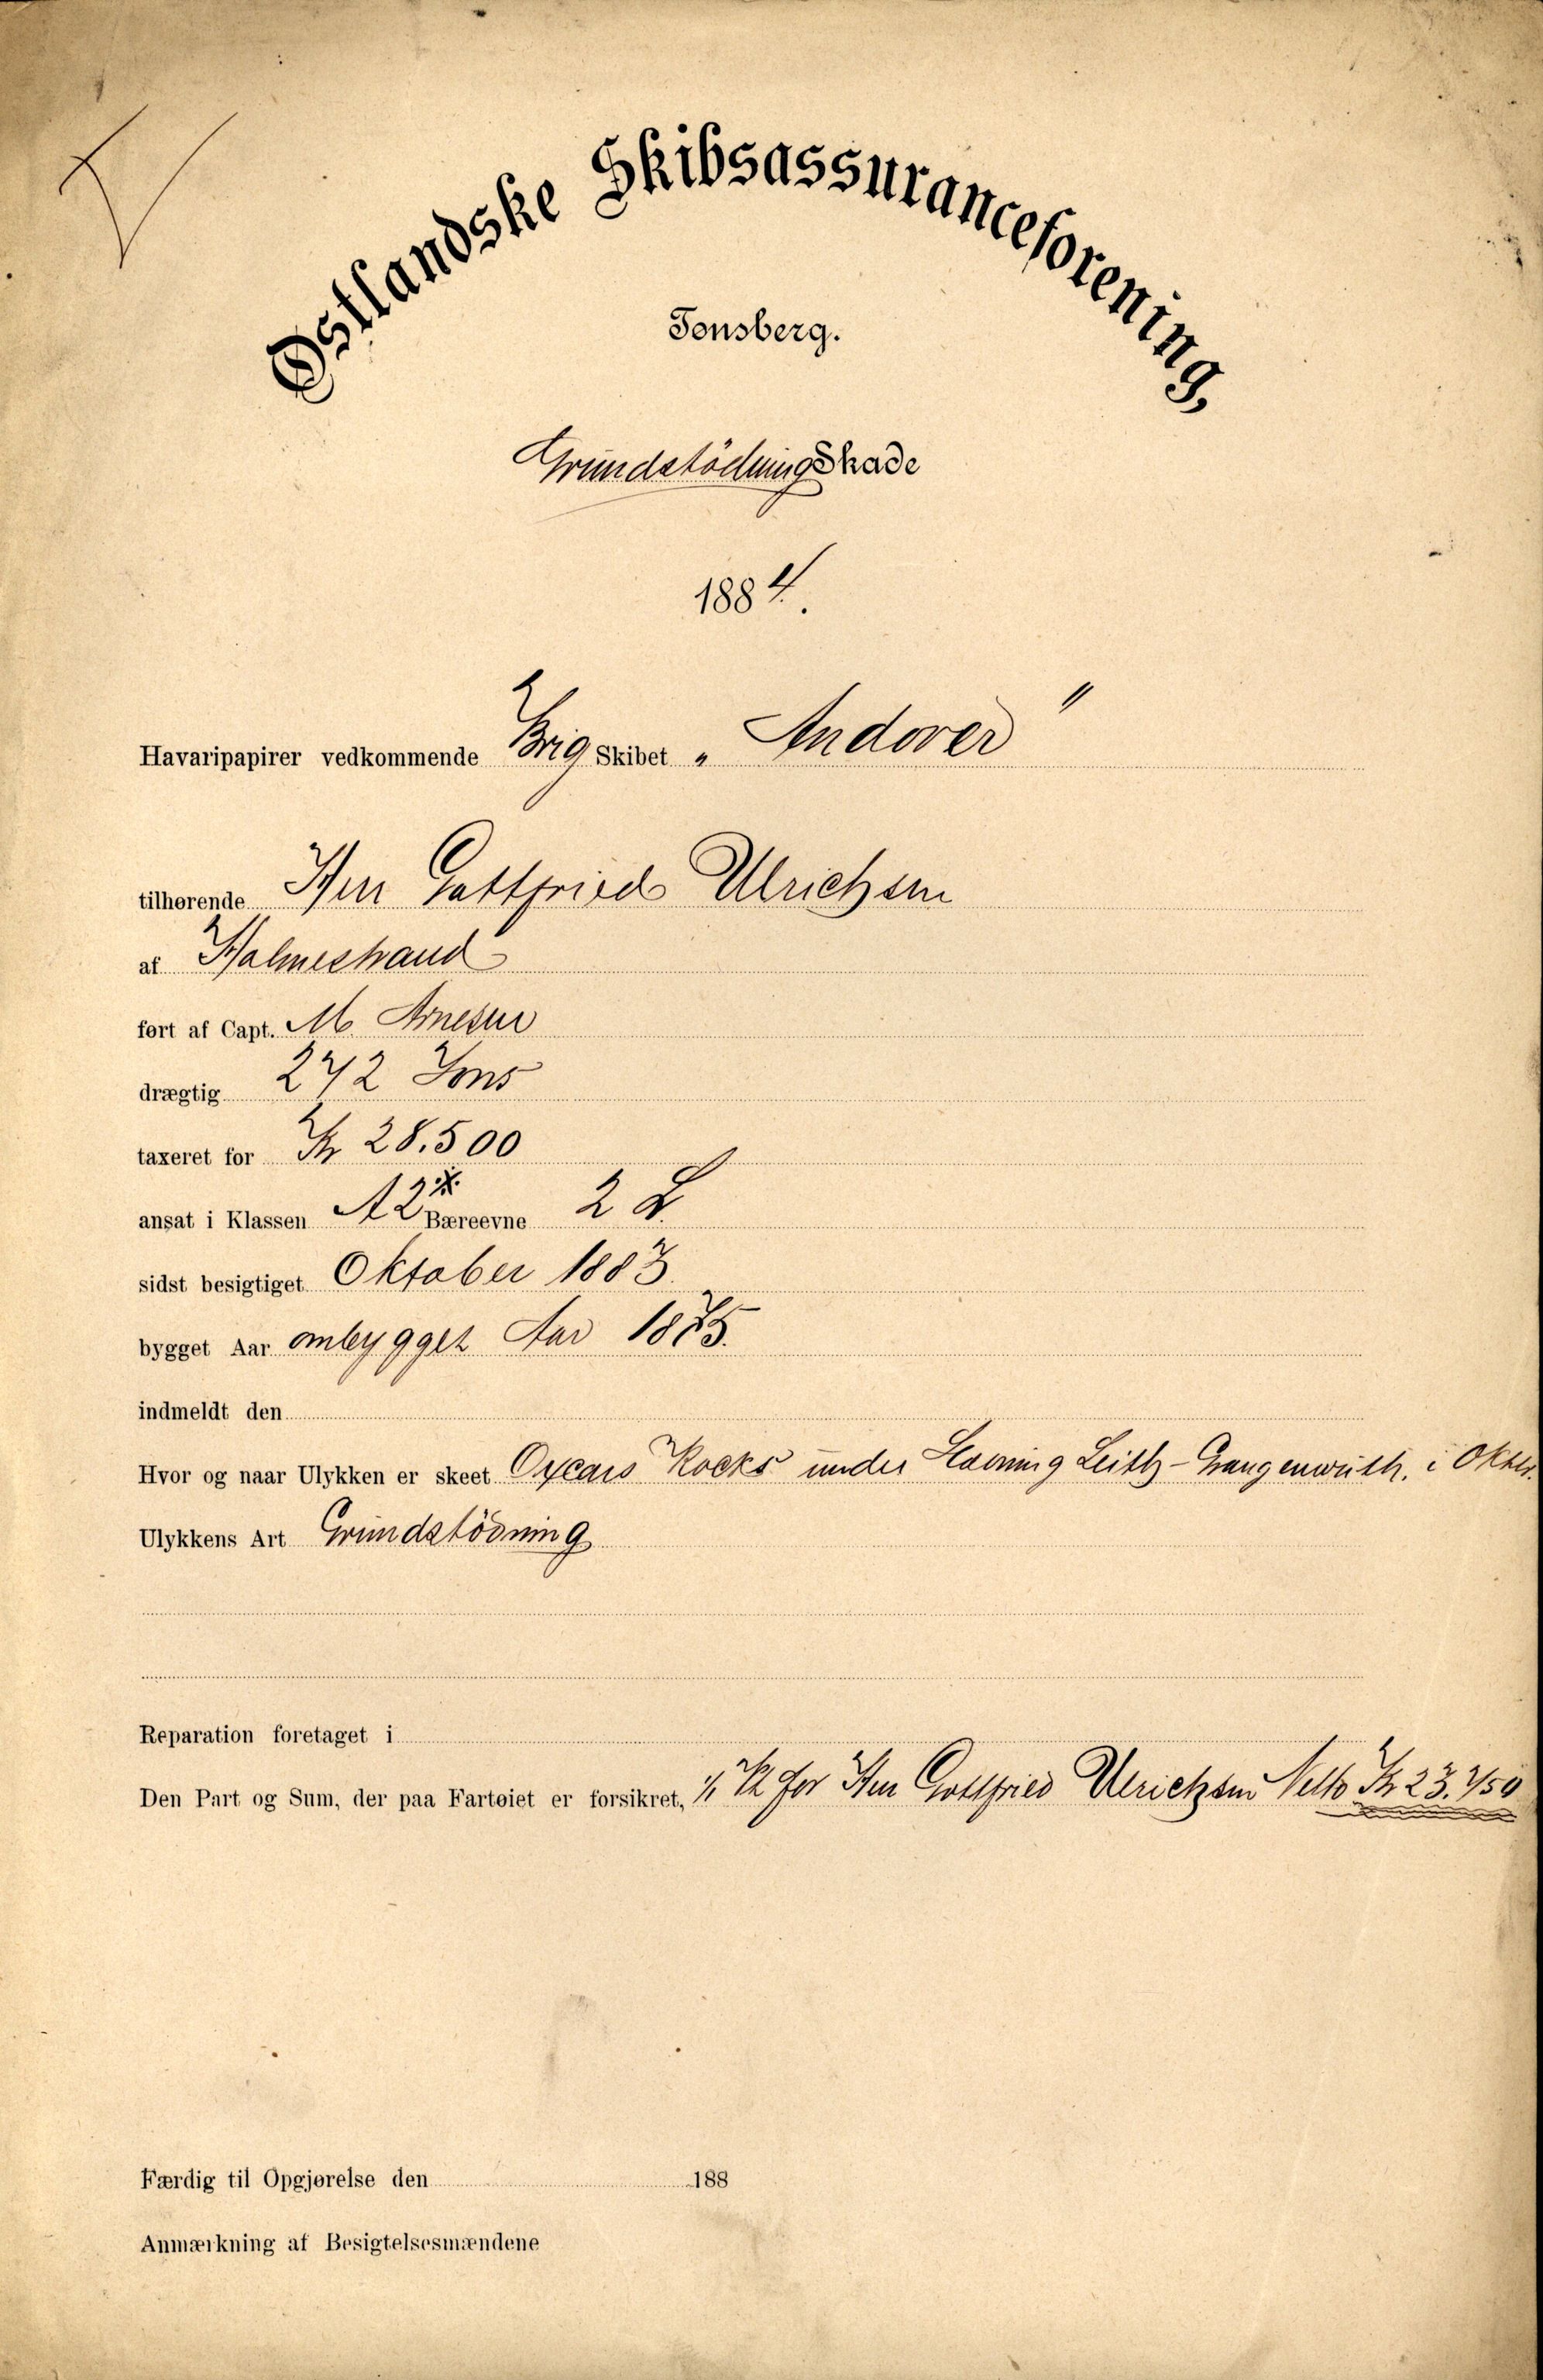 Østlandske Skibsassuranceforening,
Tønsberg.
Grundstödnings Skade
1884.
Havaripapirer vedkommende Brig Skibet „Andover"
tilhørende Herr Gottfried Ulrichsen
af Holmestrand
ført af Capt. M. Arnesen
drægtig 272 Tons
taxeret for Kr 28.500
ansat i Klassen A 2 Bæreevne 2 L
sidst besigtiget Oktober 1883.
bygget Aar ombygget Aar 1875.
indmeldt den
Hvor og naar Ulykken er skeet Oxcars Rocks under Leith - i Oktbr.
Ulykkens Art Grundstödning
Reparation foretaget i
Den Part og Sum, der paa Fartøiet er forsikret, for Herr Gottfried Ulrichsen Netto Kr 23.750
Færdig til Opgjørelse den 188
Anmærkning af Besigtelsesmændene